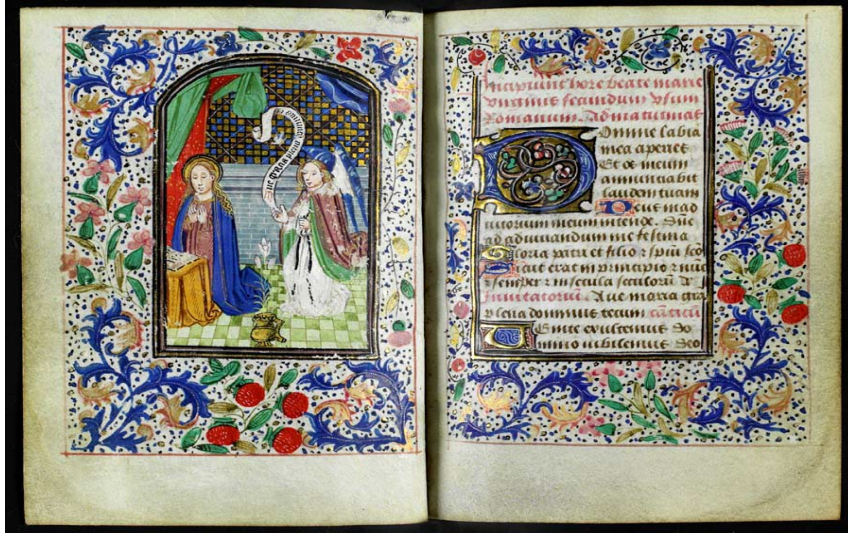 Aue gracia plena
Incipiunt hore beate marie
virginis secundum vsum
Romanum. Ad matutinas
Domine labia
mea aperies
Et os meum
annunciabit
laudem tuam
Deus in ad
iutorium meum intende. Dñe
ad adiuuandum me festina
Gloria patri et filio ⁊ spiri sco
Sicut erat in principio ⁊ nuc
⁊ semper ⁊ in secula seculorũ
Inuitatoriũ. Aue maria gra
plena dominus tecum
Uenite exultemus do
mino iubilemus deo